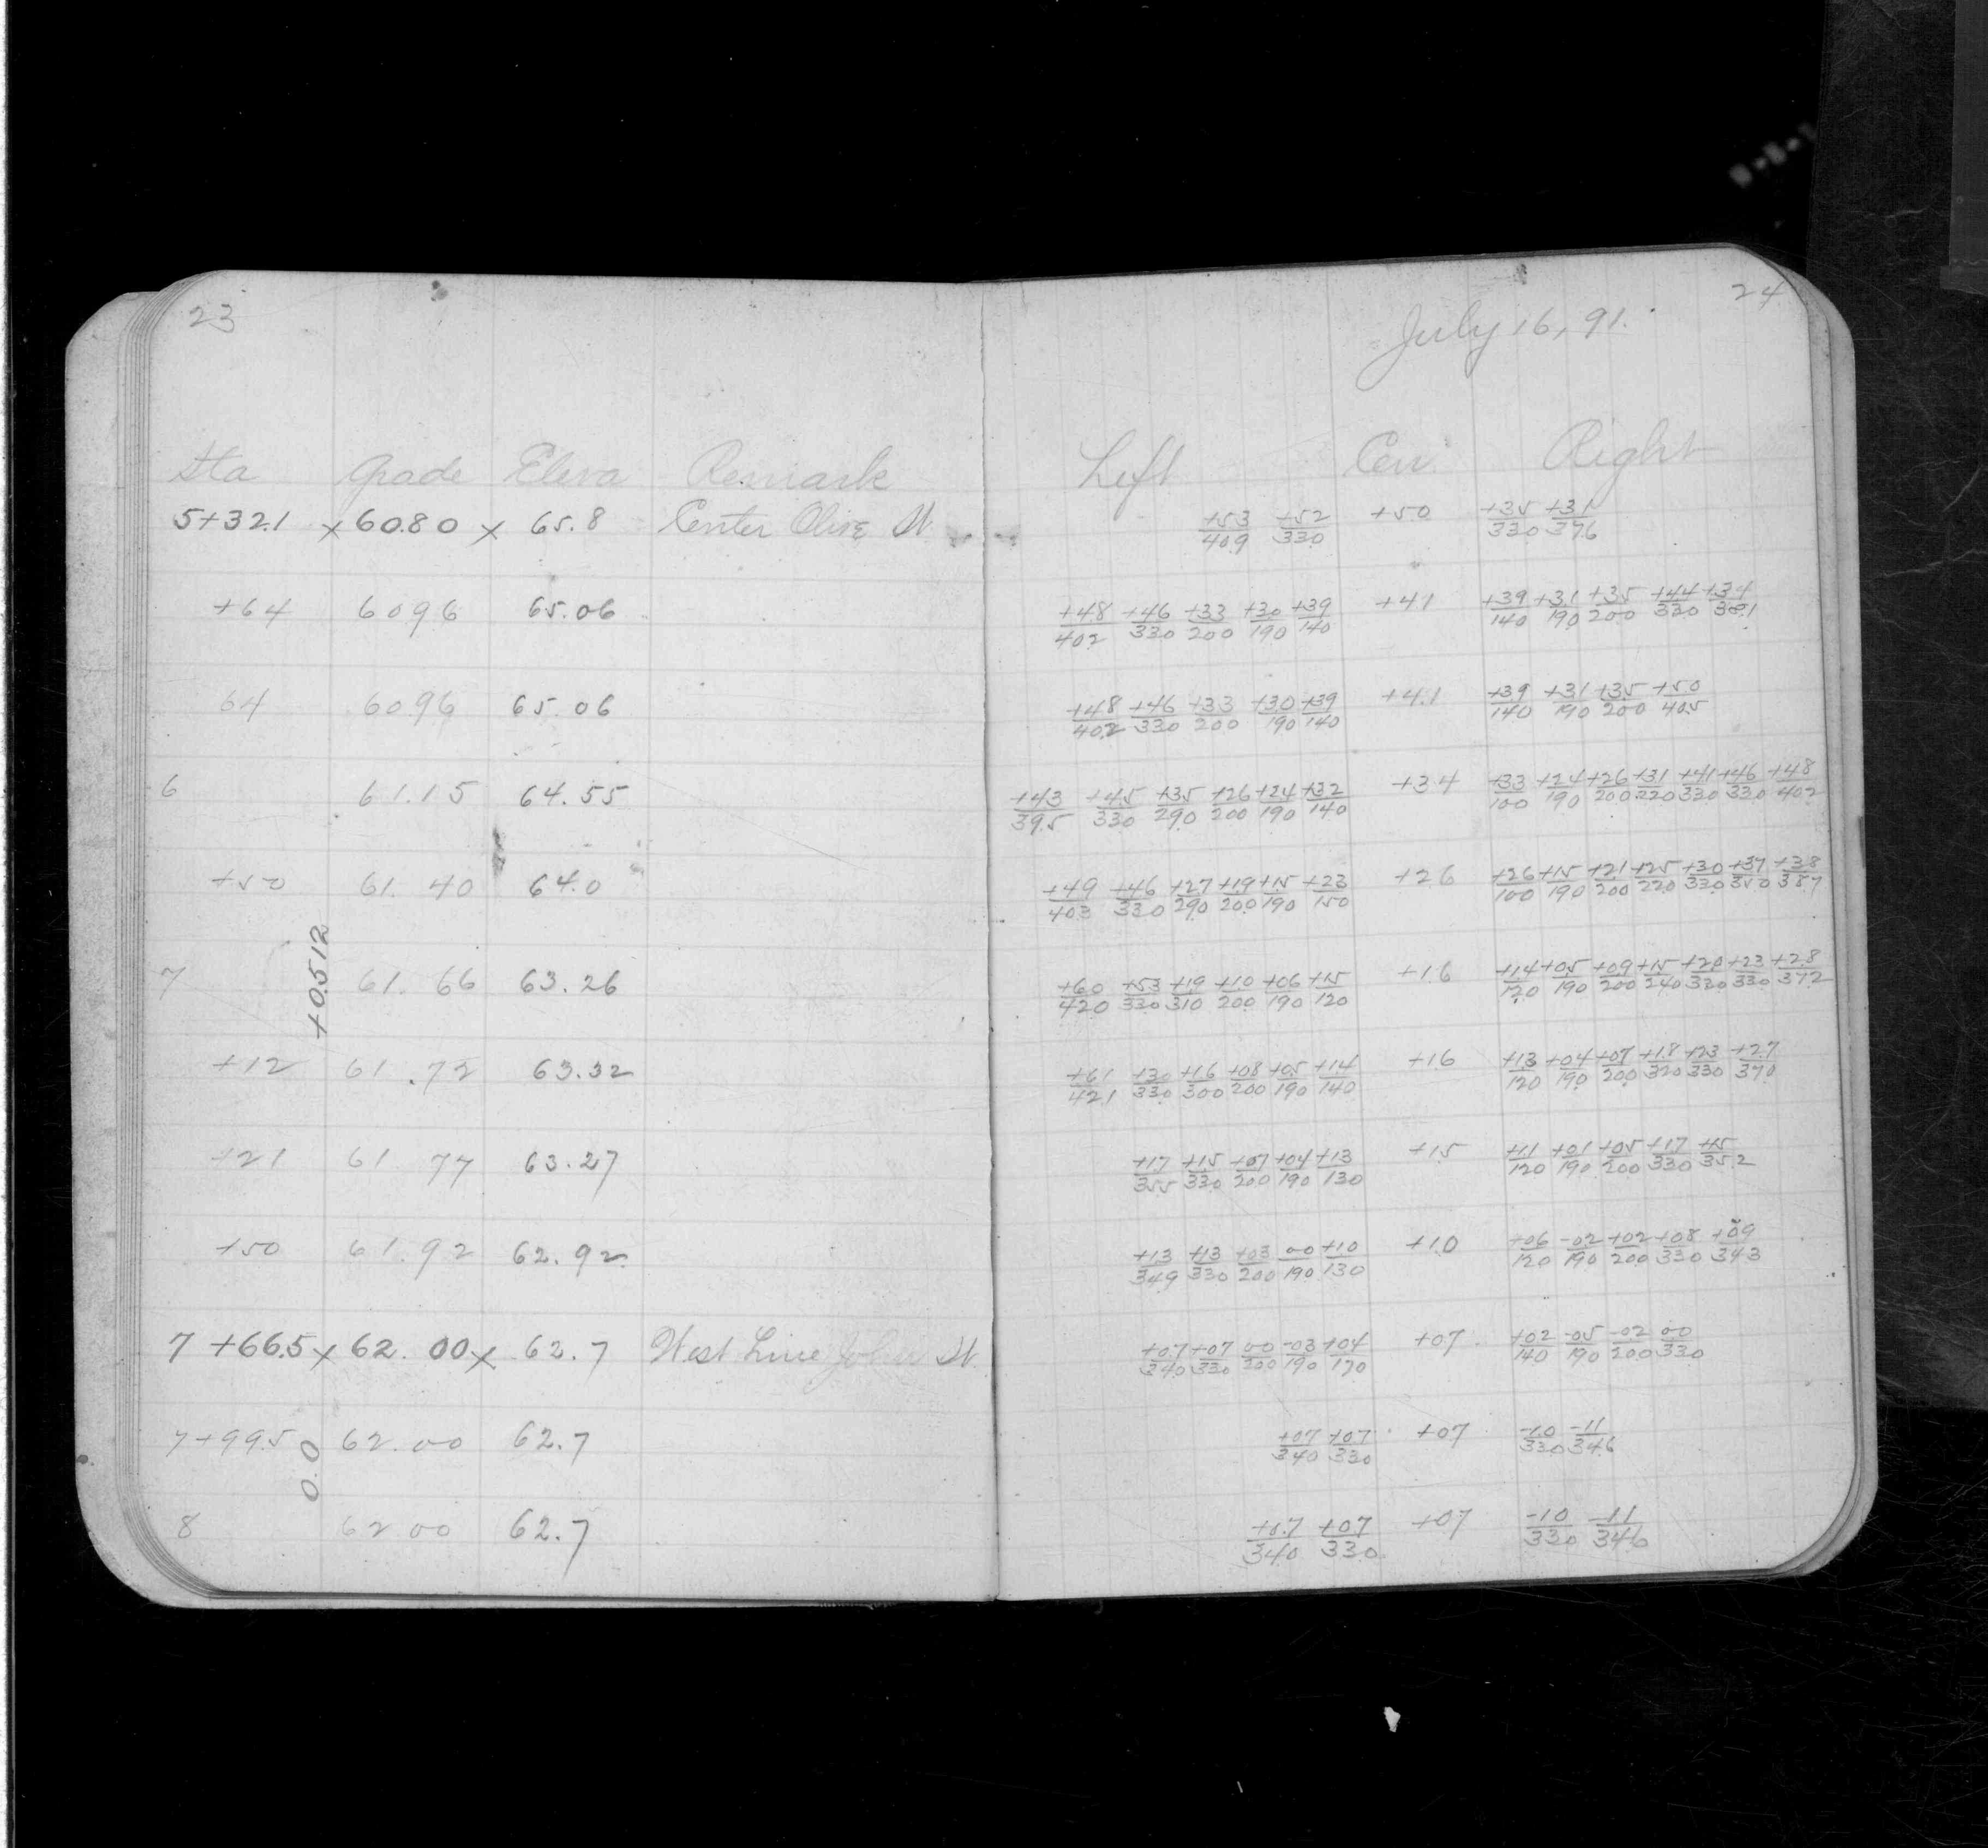 23
Sta Grade Eleva Remark
5+32.1 x 60.80 x 65.8 Center Olive St.
+64 60 96 65.06
64 60 96 65.06
6 61.15 64.55
+50 61.40 64.0
+0.512
7 61.66 63.26
+12 61.72 63.32
+21 61 77 63.27
+50 61.92 62.92
7+66.5 x 62.00 x 62.7 West Line John St.
7+99.5 62.00 62.7
0.0
8 62 00 62.7
24
July 16, 91.
Left Cen Right
+53/409 +52/330 +50 +35/330 +31/376
+48/402 +46/330 +33/200 +30/190 +39/140 +41 +39/140 +31/190 +35/200 +44/330 +34/381
+48/402 +46/330 +33/200 +30/190 +39/140 +41 +39/140 +31/190 +35/200 +50/405
+43/395 +45/330 +35/290 +26/200 +24/190 +32/140 +34 +33/100 +24/190 +26/200 +31/220 +41/330 +46/330 +48/402
+49/403 +46/330 +27/290 +19/200 +15/190 +23/150 +26 +26/100 +15/190 +21/200 +25/220 +30/330 +37/350 +38/387
+60/420 +53/330 +19/310 +10/200 +06/190 +15/120 +16 +14/120 +05/190 +09/200 +15/240 +20/320 +23/330 +28/372
+61/421 +30/330 +16/300 +08/200 +05/190 +14/140 +16 +13/120 +04/190 +07/200 +18/320 +23/330 +27/370
+17/355 +15/330 +07/200 +04/190 +13/130 +15 +11/120 +01/190 +05/200 +17/330 +15/352
+13/349 +13/330 +03/200 00/190 +10/130 +10 +06/120 -02/190 +02/200 +08/330 +09/343
+07/340 +07/330 00/200 -03/190 +04/130 +07 +02/140 -05/190 -02/200 00/330
+07/340 +07/330 +07 -10/330 -11/346
+07/340 +07/330 +07 -10/330 -11/346